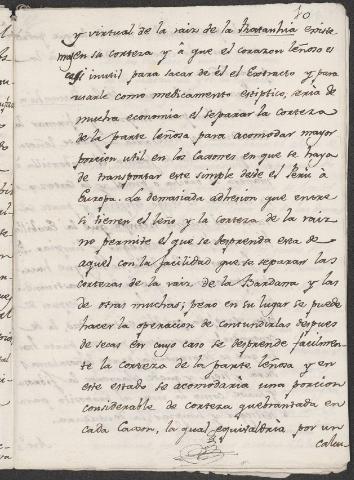 10
y virtual de la raiz de la Ratanhia existe
mas en su corteza y â que el corazon leñoso es
casi inutil para sacar de él el Extracto y para
usarle como medicamento estiptico, seria de
mucha economia el separar la corteza
de la parte leñosa para acomodar mayor
porcion util en los Caxones en que se haya
de transportar este simple desde el Perù à
Europa. La demasiada adhesion que entre
si tienen el leño y la corteza de la raiz
no permite el que se desprenda esta de
aquel con la facilidad que se separan las
cortezas de la raiz de la Bardana y las
de otras muchas; pero en su lugar se puede
hacer la operacion de contundirlas despues
de secas en cuyo caso se desprende facilmen-
te la corteza de la parte leñosa y en
este estado se acomodaria una porcion
considerable de corteza quebrantada en
cada Caxon, la qual equivaldria por un
calcu-